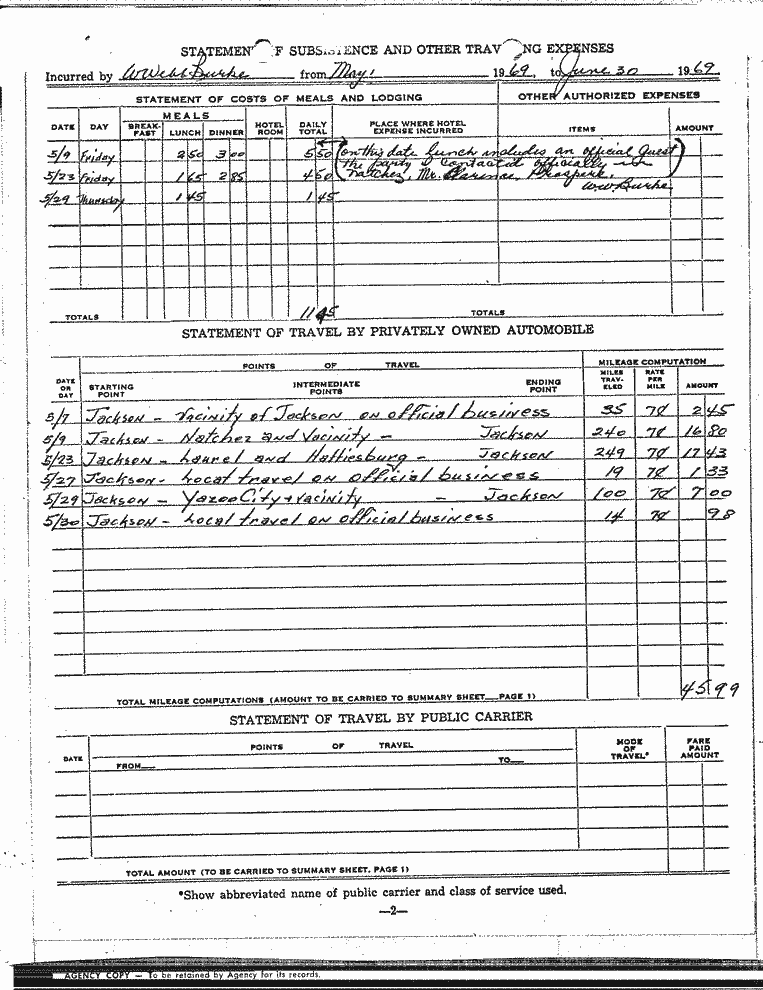 STATEMEN F SUBSISTENCE AND OTHER TRAV NG EXPENSES
Incurred by W Webb Burke from May 1 1969, to June 30 1969
STATEMENT OF COSTS OF MEALS AND LODGING OTHER AUTHORIZED EXPENSES
MEALS
DATE DAY BREAK-FAST LUNCH DINNER HOTEL ROOM DAILY TOTAL PLACE WHERE HOTEL EXPENSE INCURRED ITEMS AMOUNT
5/9 Friday 2 50 3 00 5 50 (on this date lunch includes an official Guest
5/23 Friday 1 65 2 85 4 50 the party I contacted officially in
Natchez, Mr. Clarence)
W.W. Burke
5/29 Thursday 1 45 1 45
TOTALS 11 45 TOTALS
STATEMENT OF TRAVEL BY PRIVATELY OWNED AUTOMOBILE
POINTS OF TRAVEL MILEAGE COMPUTATION
DATE OR DAY STARTING POINT INTERMEDIATE POINTS ENDING POINT MILES TRAV-ELED RATE PER MILE AMOUNT
5/7 Jackson - Vacinity of Jackson on official business 35 7¢ 2 45
5/9 Jackson - Natchez and Vacinity - Jackson 240 7¢ 16 80
5/23 Jackson - Laurel and Hattiesburg - Jackson 249 7¢ 17 43
5/27 Jackson - Local travel on official business 19 7¢ 1 33
5/29 Jackson - Yazoo City + vacinity - Jackson 100 7¢ 7 00
5/30 Jackson - Local travel on official business 14 7¢ 98
TOTAL MILEAGE COMPUTATIONS (AMOUNT TO BE CARRIED TO SUMMARY SHEET PAGE 1) 45 99
STATEMENT OF TRAVEL BY PUBLIC CARRIER
DATE POINTS OF TRAVEL MODE OF TRAVEL* FARE PAID AMOUNT
FROM TO
TOTAL AMOUNT (TO BE CARRIED TO SUMMARY SHEET, PAGE 1)
*Show abbreviated name of public carrier and class of service used.
—2—
AGENCY COPY — To be retained by Agency for its records.